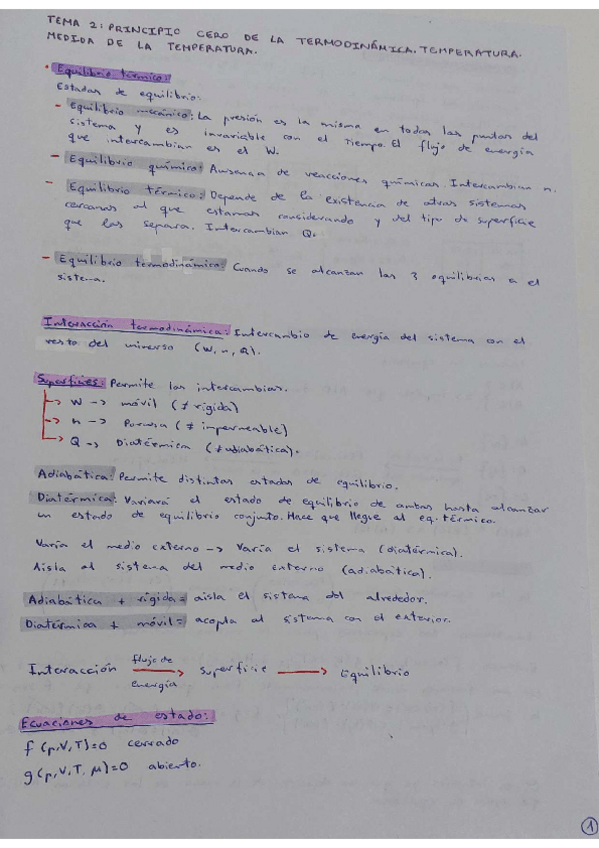 TEMA 2: PRINCIPIO CERO DE LA TERMODINÁMICA. TEMPERATURA.
MEDIDA DE LA TEMPERATURA.
• Equilibrio térmico:
Estados de equilibrio:
- Equilibrio mecánico: La presión es la misma en todos los puntos del
sistema y es invariable con el tiempo. El flujo de energía
que intercambian es el W.
- Equilibrio químico: Ausencia de reacciones químicas. Intercambian n.
- Equilibrio térmico: Depende de la existencia de otros sistemas
cercanos al que estamos considerando y del tipo de superficie
que los separa. Intercambian Q.
- Equilibrio termodinámico: Cuando se alcanzan los 3 equilibrios a el
sistema.
Interacción termodinámica: Intercambio de energía del sistema con el
resto del universo (W, n, Q).
Superficies: Permite los intercambios.
→ W → móvil (≠ rígida)
→ n → Porosa (≠ impermeable)
→ Q → Diatérmica (≠ adiabática).
Adiabática: Permite distintos estados de equilibrio.
Diatérmica: Variará el estado de equilibrio de ambos hasta alcanzar
un estado de equilibrio conjunto. Hace que llegue al eq. térmico.
Varía el medio externo → Varía el sistema (diatérmica).
Aisla al sistema del medio externo (adiabática).
Adiabática + rígida = aisla el sistema del alrededor.
Diatérmica + móvil = acopla al sistema con el exterior.
Interacción flujo de energía → superficie → Equilibrio
Ecuaciones de estado:
f (p,V,T)=0 cerrado
g(p,V,T, μ)=0 abierto.
1